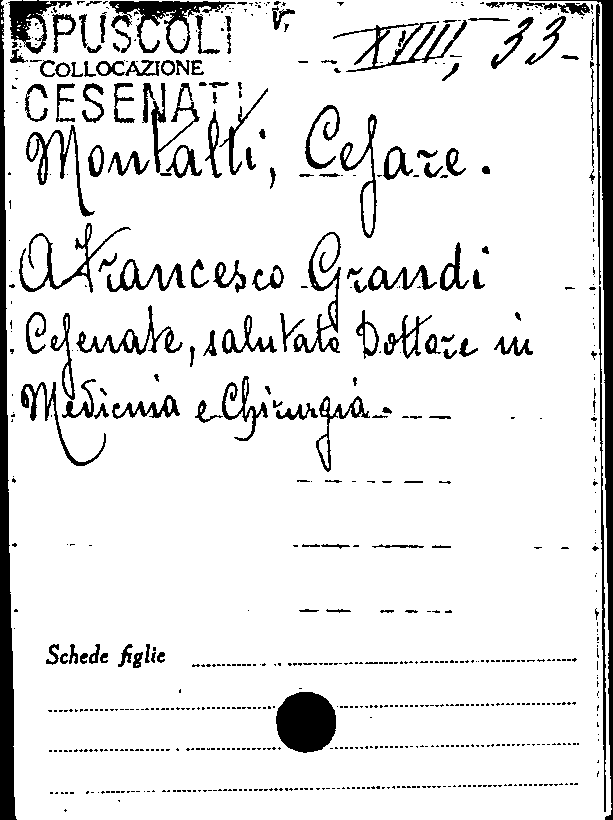 OPUSCOLI V,
COLLOCAZIONE XVIII, 33
CESENATI
Montalti, Cesare.
A Francesco Grandi
Cesenate, salutato Dottore in
Medicina e Chirurgia.
Schede figlie